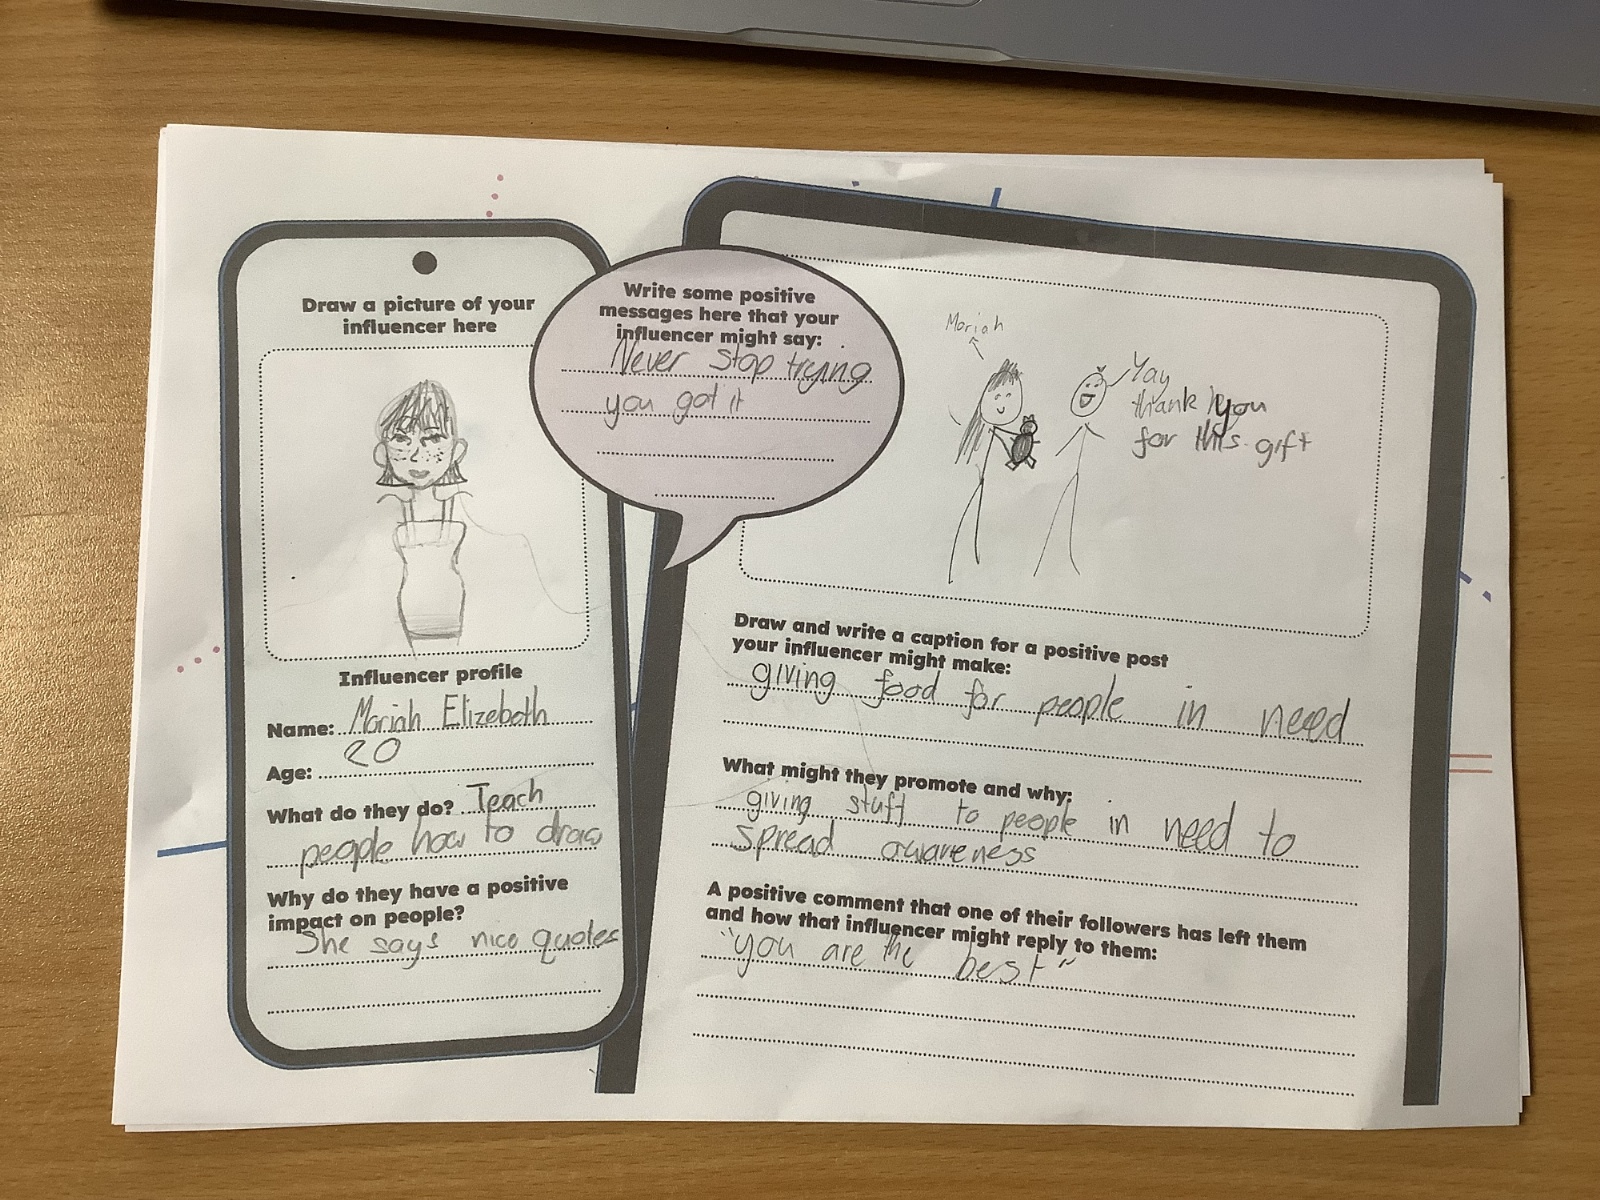 Draw a picture of your
influencer here
Influencer profile
Name: Moriah Elizebeth
Age: 20
What do they do? Teach
people how to draw
Why do they have a positive
impact on people?
She says nice quotes
Write some positive
messages here that your
influencer might say:
Never stop trying
you got it
Moriah
Yay
thank you
for this gift
Draw and write a caption for a positive post
your influencer might make:
giving food for people in need
What might they promote and why:
giving stuff to people in need to
spread awareness
A positive comment that one of their followers has left them
and how that influencer might reply to them:
"you are the best"